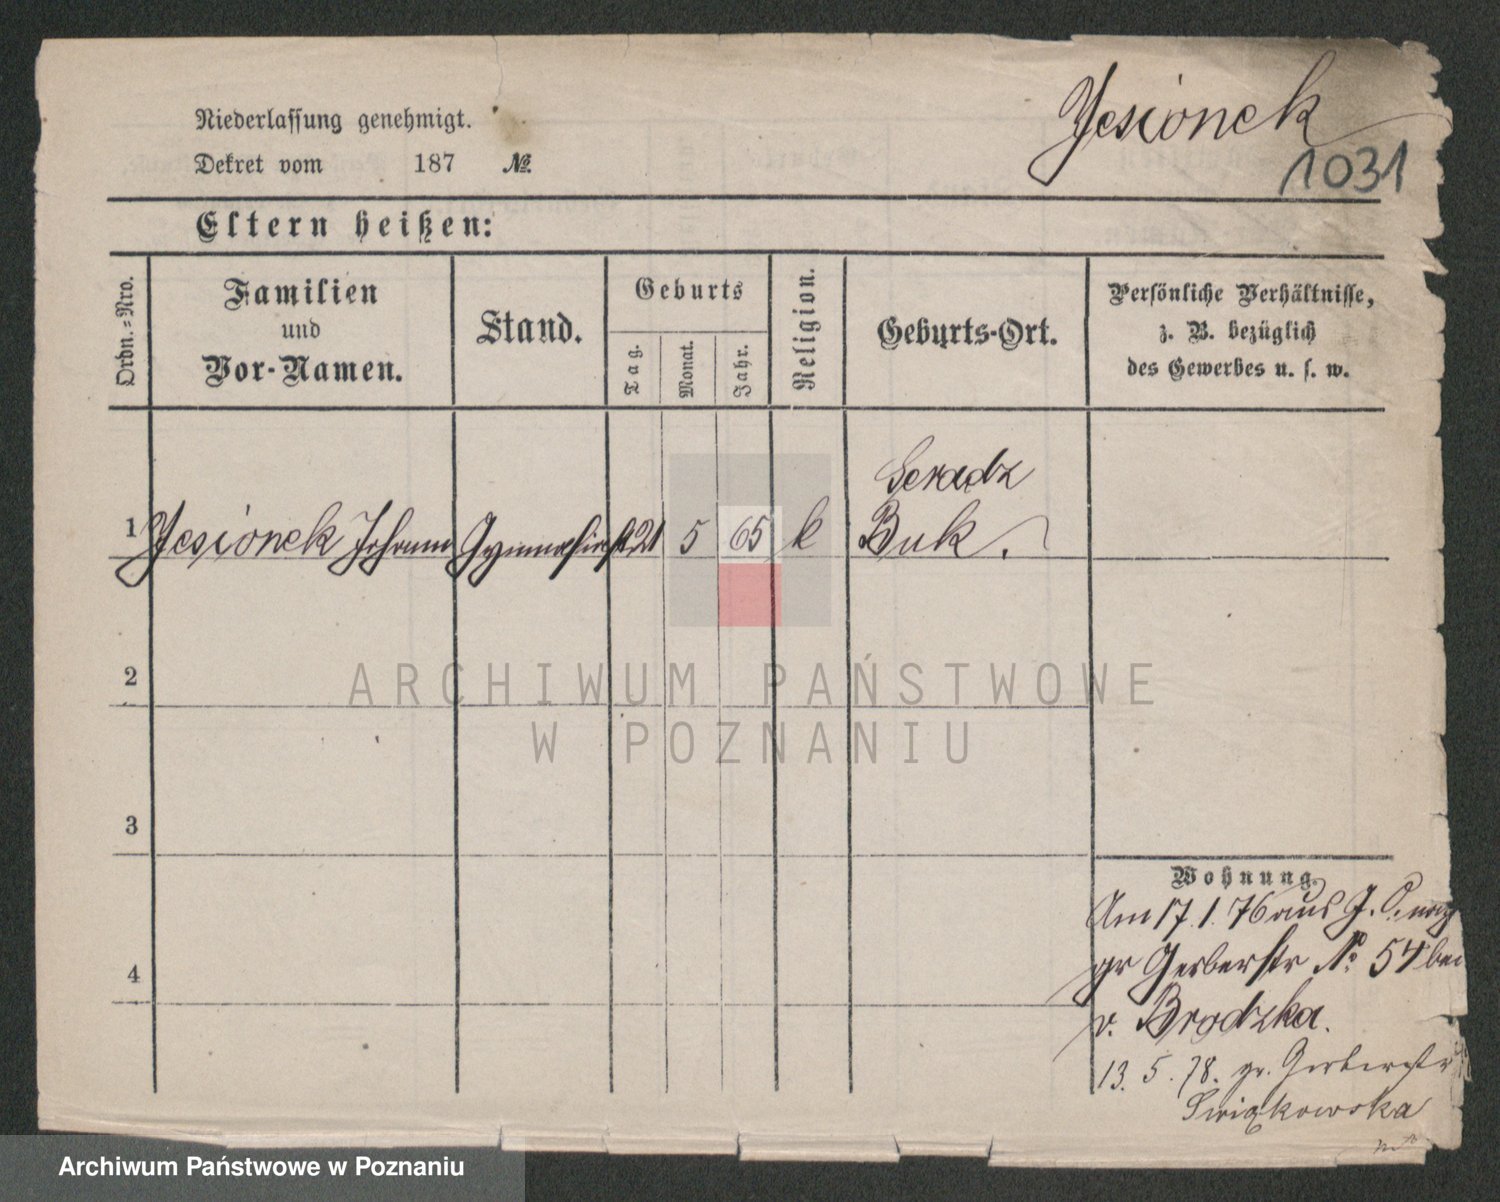 Niederlassung genehmigt.
Jesionek
Dekret vom 187 №
1031
Eltern heißen:
Ordn.=Nro.
Familien
und
Vor-Namen.
Stand.
Geburts
Tag.
Monat.
Jahr.
Religion.
Geburts-Ort.
Persönliche Verhältnisse,
z. B. bezüglich
des Gewerbes u. s. w.
Seradz
1 Jesionek Johann Gymnasiast 21 5 65 k Buk.
2
3
4
Wohnung.
Am 17. 1. 76 aus
gr Gerberstr No 54 bei
v. Brodzka.
13. 5. 78. gr. Gerberstr
Swiąkowska
ARCHIWUM PAŃSTWOWE
W POZNANIU
Archiwum Państwowe w Poznaniu